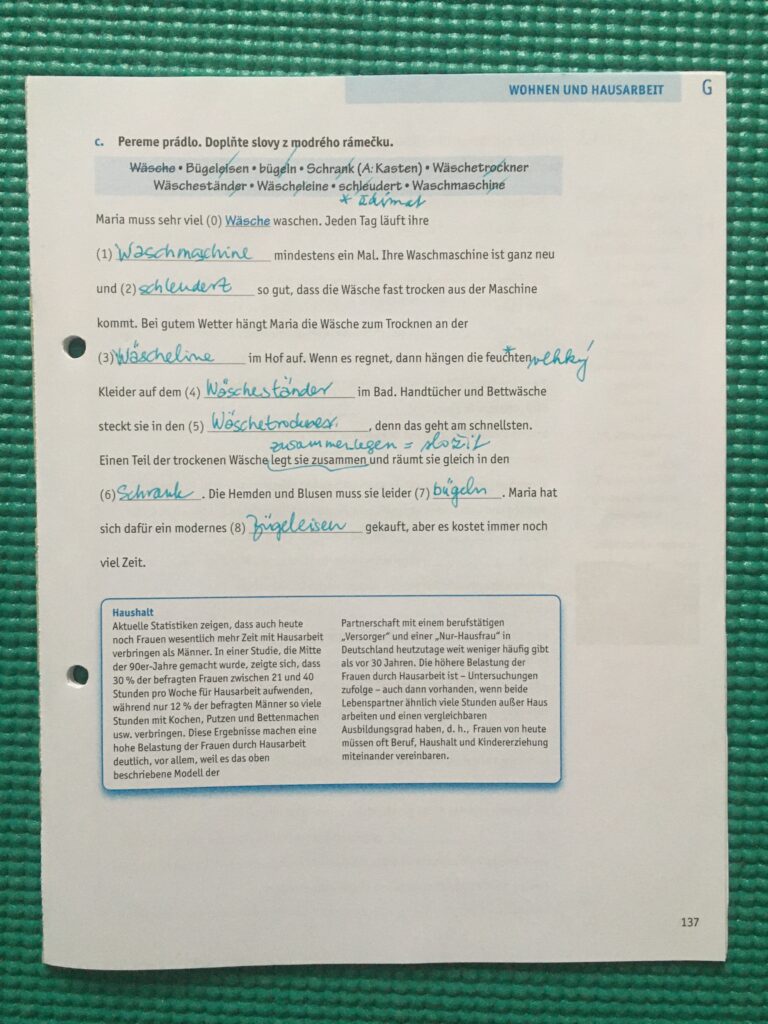 WOHNEN UND HAUSARBEIT G
c. Pereme prádlo. Doplňte slovy z modrého rámečku.
Wäsche • Bügeleisen • bügeln • Schrank (A: Kasten) • Wäschetrockner
Wäscheständer • Wäscheleine • schleudert • Waschmaschine
* ždímat
Maria muss sehr viel (0) Wäsche waschen. Jeden Tag läuft ihre
(1) Waschmaschine mindestens ein Mal. Ihre Waschmaschine ist ganz neu
und (2) schleudert so gut, dass die Wäsche fast trocken aus der Maschine
kommt. Bei gutem Wetter hängt Maria die Wäsche zum Trocknen an der
(3) Wäscheline im Hof auf. Wenn es regnet, dann hängen die feuchten* vlhký
Kleider auf dem (4) Wäscheständer im Bad. Handtücher und Bettwäsche
steckt sie in den (5) Wäschetrockner, denn das geht am schnellsten.
zusammenlegen = složit
Einen Teil der trockenen Wäsche legt sie zusammen und räumt sie gleich in den
(6) Schrank. Die Hemden und Blusen muss sie leider (7) bügeln. Maria hat
sich dafür ein modernes (8) Bügeleisen gekauft, aber es kostet immer noch
viel Zeit.
Haushalt
Aktuelle Statistiken zeigen, dass auch heute
noch Frauen wesentlich mehr Zeit mit Hausarbeit
verbringen als Männer. In einer Studie, die Mitte
der 90er-Jahre gemacht wurde, zeigte sich, dass
30 % der befragten Frauen zwischen 21 und 40
Stunden pro Woche für Hausarbeit aufwenden,
während nur 12 % der befragten Männer so viele
Stunden mit Kochen, Putzen und Bettenmachen
usw. verbringen. Diese Ergebnisse machen eine
hohe Belastung der Frauen durch Hausarbeit
deutlich, vor allem, weil es das oben
beschriebene Modell der
Partnerschaft mit einem berufstätigen
„Versorger“ und einer „Nur-Hausfrau“ in
Deutschland heutzutage weit weniger häufig gibt
als vor 30 Jahren. Die höhere Belastung der
Frauen durch Hausarbeit ist – Untersuchungen
zufolge – auch dann vorhanden, wenn beide
Lebenspartner ähnlich viele Stunden außer Haus
arbeiten und einen vergleichbaren
Ausbildungsgrad haben, d. h., Frauen von heute
müssen oft Beruf, Haushalt und Kindererziehung
miteinander vereinbaren.
137